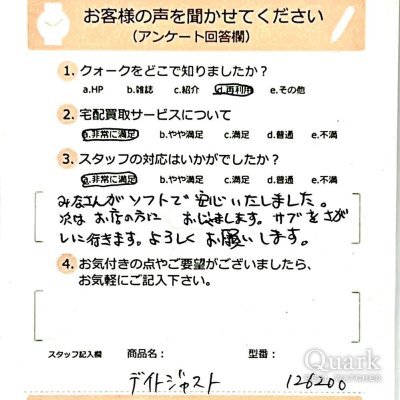 お客様の声を聞かせてください
(アンケート回答欄)
1. クォークをどこで知りましたか?
a.HP b.雑誌 c.紹介 d.再利用 e.その他
2. 宅配買取サービスについて
a.非常に満足 b.やや満足 c.満足 d.普通 e.不満
3. スタッフの対応はいかがでしたか?
a.非常に満足 b.やや満足 c.満足 d.普通 e.不満
みなさんがソフトで安心いたしました。
次はお店の方におじゃまします。サブをさが
しに行きます。よろしくお願いします。
4. お気付きの点やご要望がございましたら、
お気軽にご記入下さい。
スタッフ記入欄 商品名: 型番:
デイトジャスト 126200
Quark
WATCHES